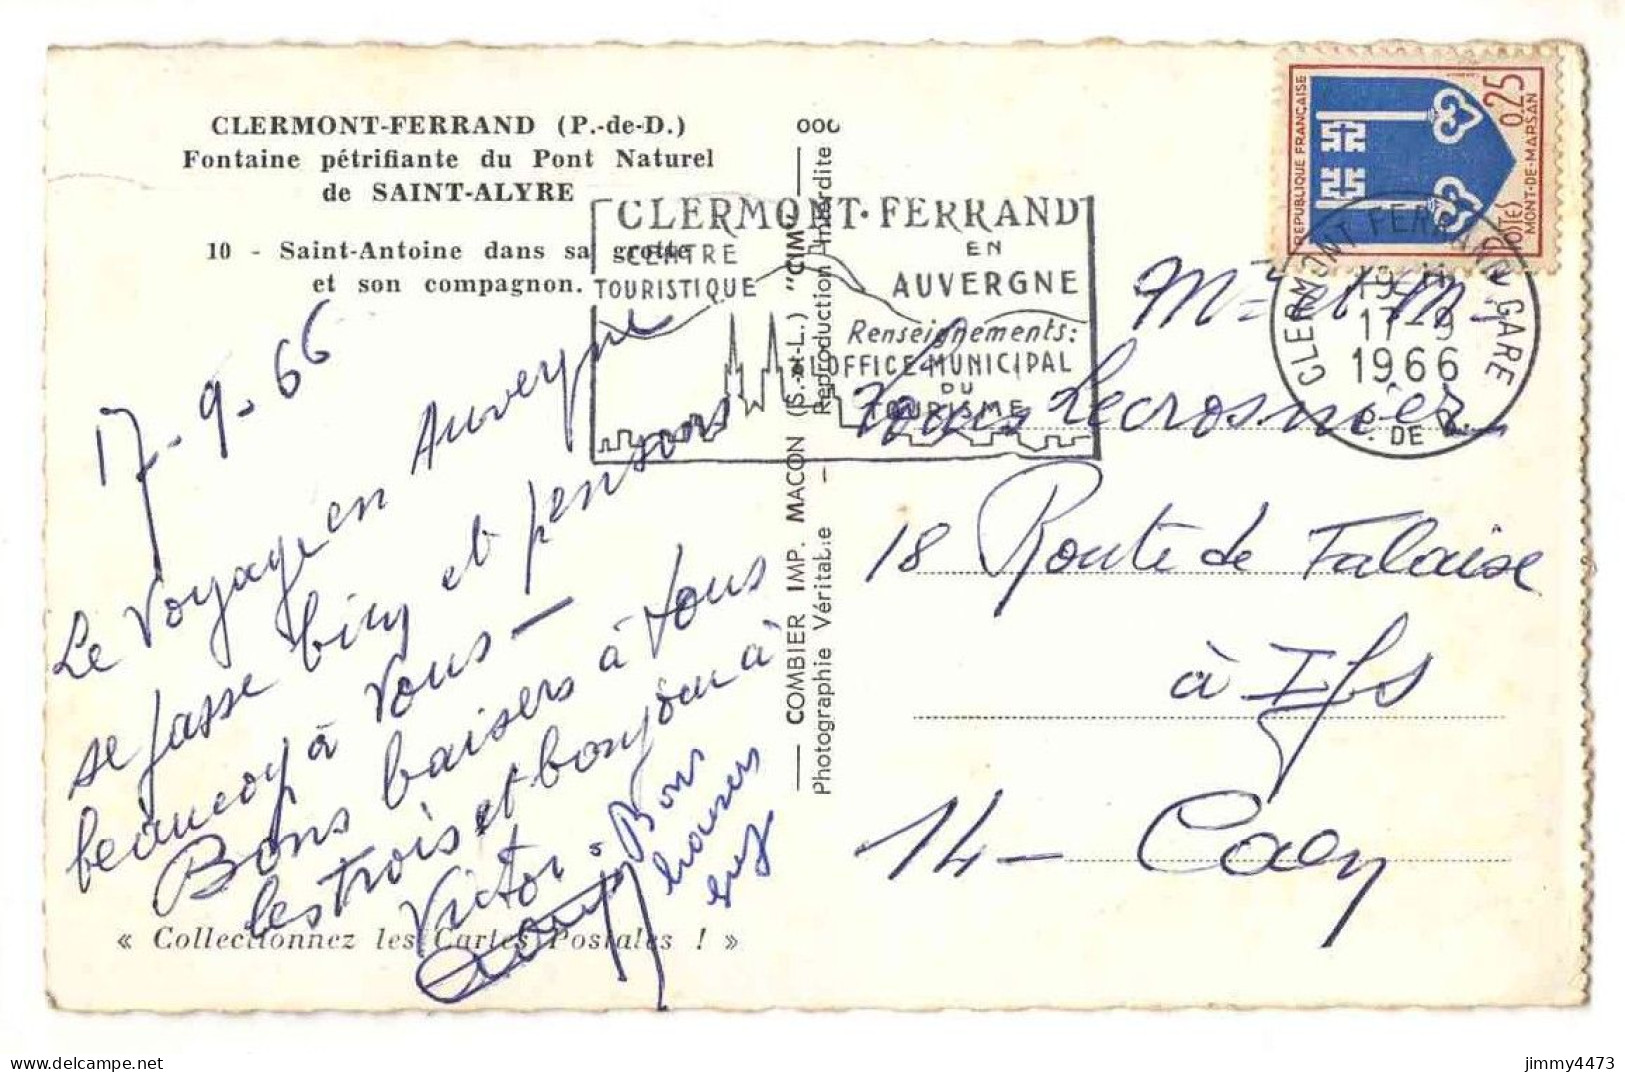 CLERMONT-FERRAND (P.-de-D.)
Fontaine pétrifiante du Pont Naturel
de SAINT-ALYRE
10 - Saint-Antoine dans sa grotte
et son compagnon.
17-9-66
Le Voyage en Auvergne
se passe bien et pensons
beaucoup à vous -
Bons baisers à tous
les trois et bonjour à
Victor.
Bons
baisers
« Collectionnez les Cartes Postales ! »
COMBIER IMP. MACON (S.-et-L.) "CIM"
Photographie Véritable - Reproduction interdite
CLERMONT-FERRAND
CENTRE
TOURISTIQUE
EN
AUVERGNE
Renseignements:
OFFICE MUNICIPAL
DU
TOURISME
REPUBLIQUE FRANÇAISE
0,25
POSTES
MONT-DE-MARSAN
CLERMONT FERRAND GARE
17-9
1966
P. DE D.
Mme et Mr
Lecrosnier
18 Route de Falaise
à Ifs
14 - Caen
delcampe.net
jimmy4473